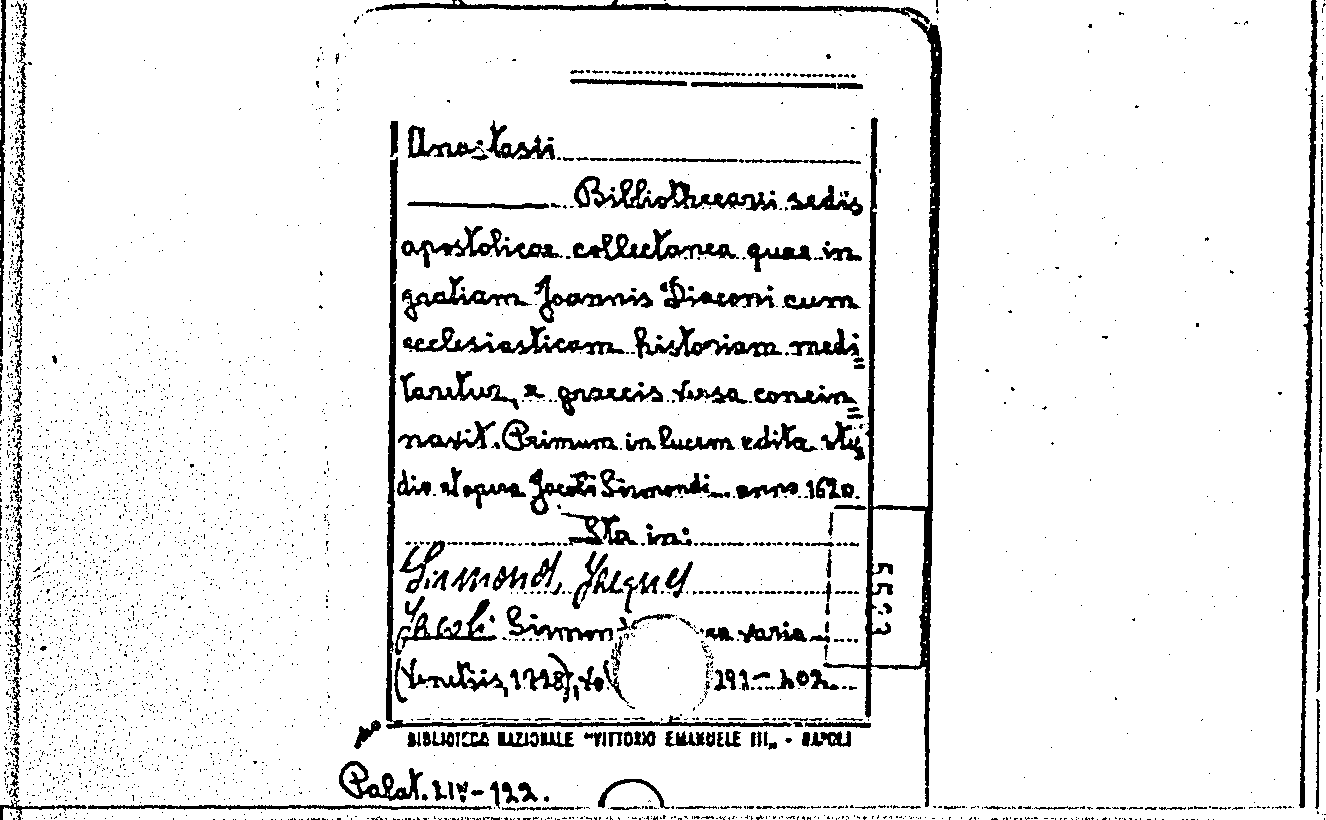 Anastasii
Bibliothecarii sedis
apostolicae collectanea quae in
gratiam Joannis Diaconi cum
ecclesiasticam historiam medi=
taretur, e graecis versa concin=
navit. Primum in lucem edita stu=
dio et opera Jacobi Sirmondi anno 1620.
Sta in:
Sirmond, Jacques
Jacobi varia
(Venetiis, 1728),
BIBLIOTECA NAZIONALE "VITTORIO EMANUELE III„ - NAPOLI
Palat.